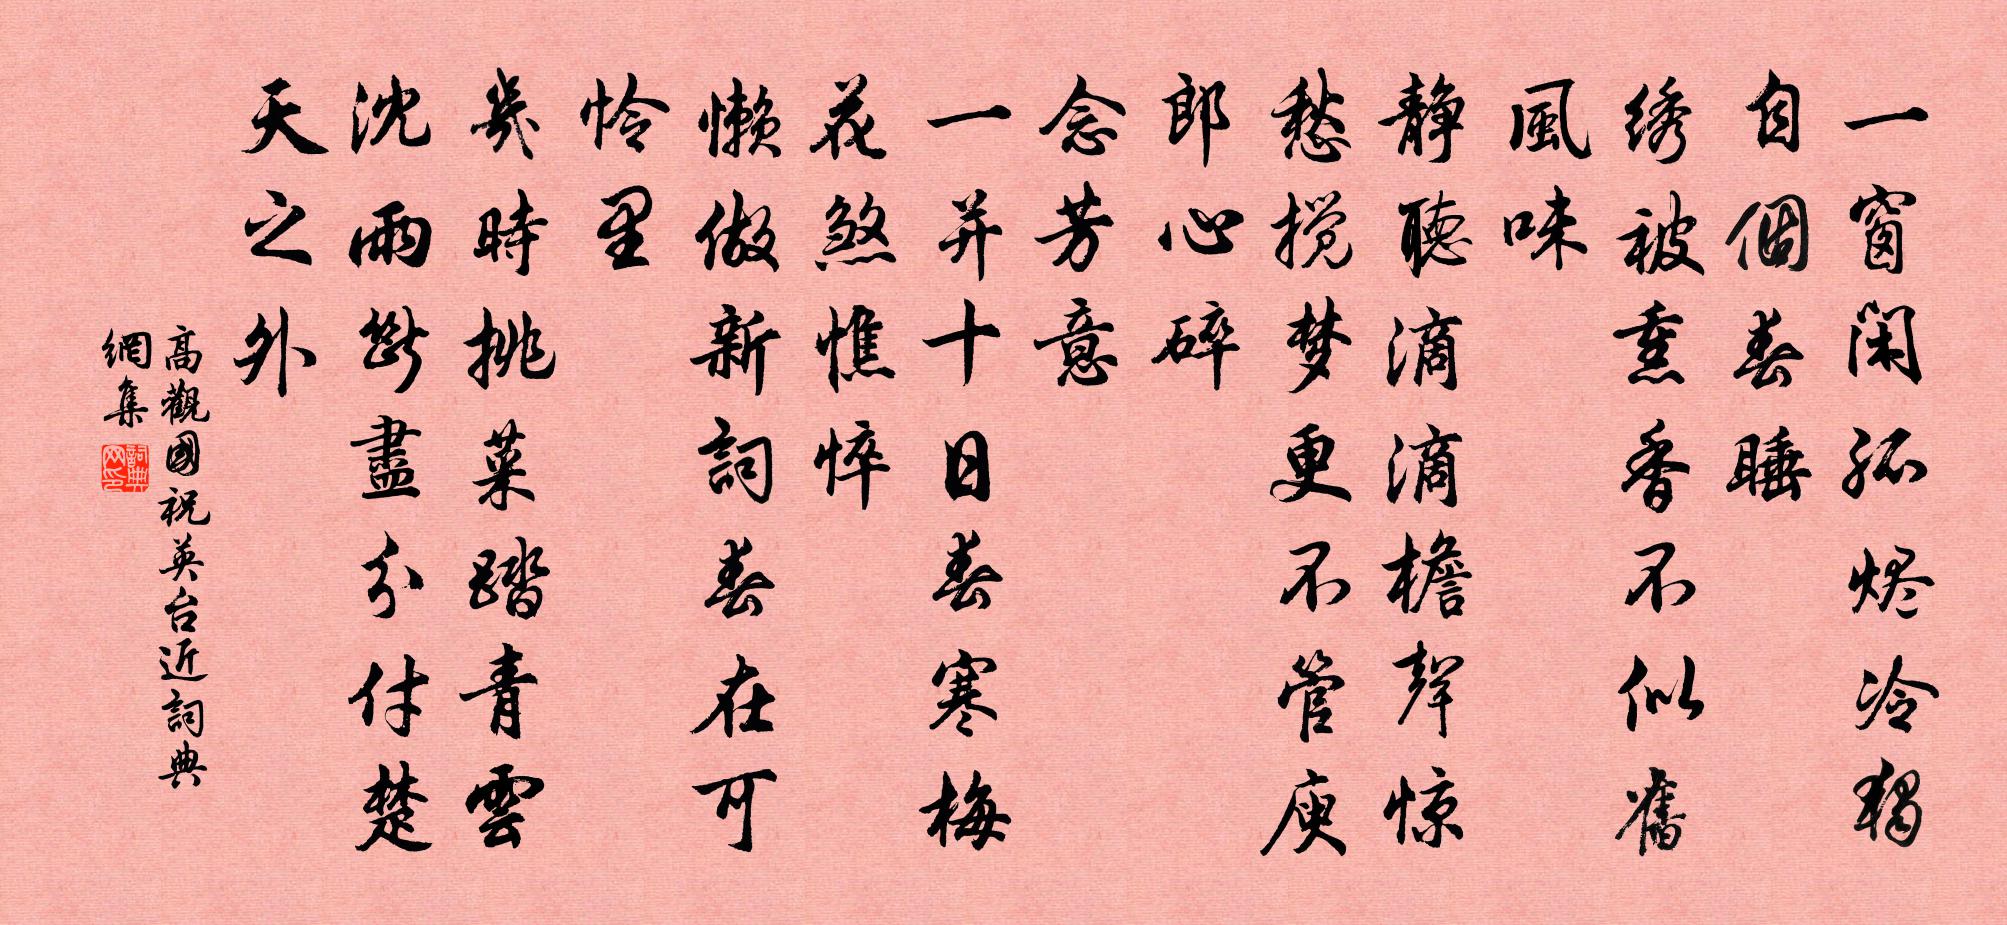 一窗闲孤烬冷獨
自個春睡
绣被熏香不似舊
風味
静聴滴滴檐聲惊
愁搅梦更不管庾
郎心碎
念芳意
一并十日春寒梅
花煞憔悴
懒做新詞春在可
怜里
幾時挑菜踏青雲
沈雨斷盡分付楚
天之外
高觀國祝英台近詞典
網集
詞典网印